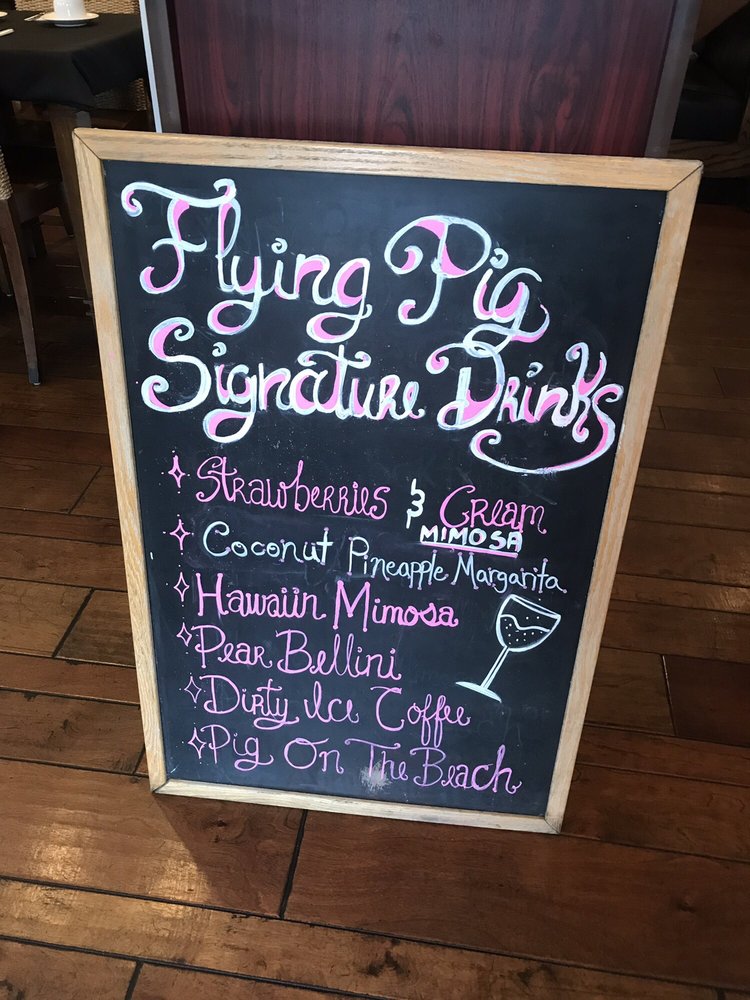 Flying Pig
Signature Drinks
Strawberries & Cream
MIMOSA
Coconut Pineapple Margarita
Hawaiin Mimosa
Pear Bellini
Dirty Ice Coffee
Pig On The Beach